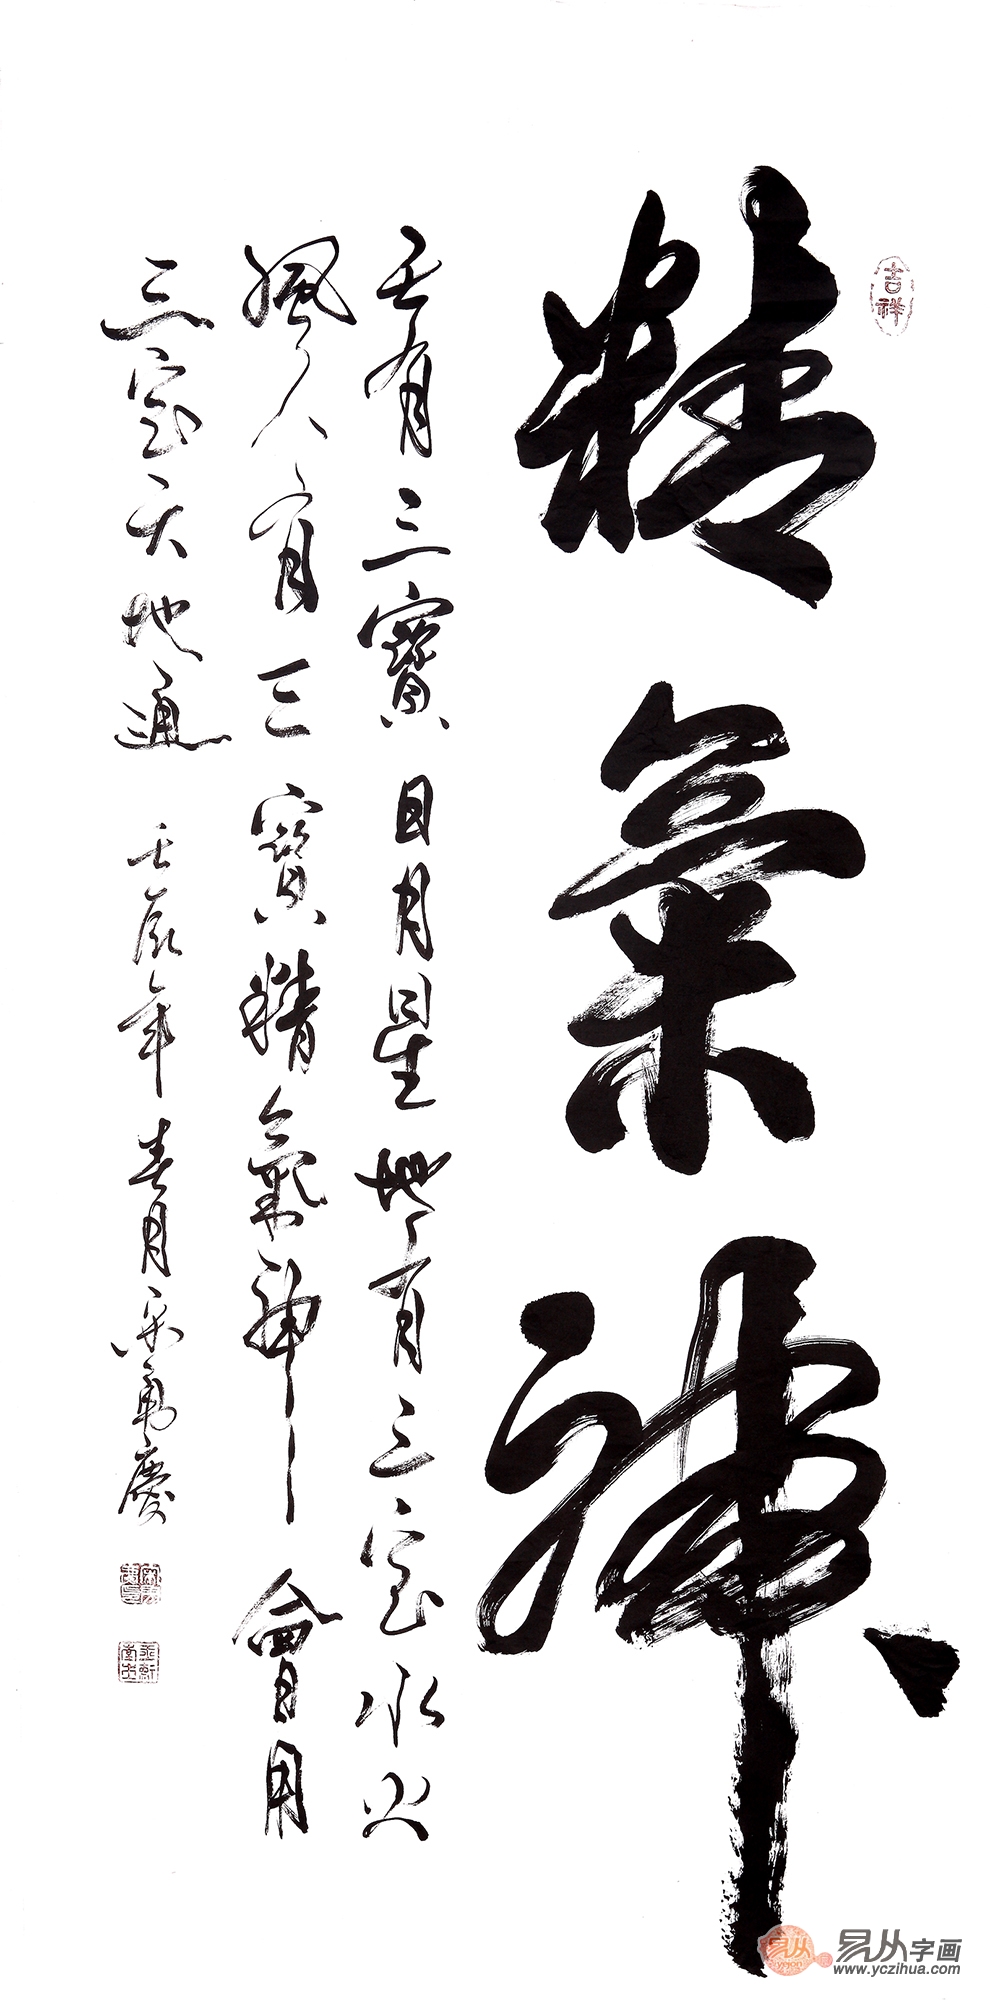 吉祥
精氣神
天有三寶日月星地有三宝水火
風人有三寶精氣神會用
三宝天地通
壬辰年春月宋勇慶
易从字画
www.yczihua.com